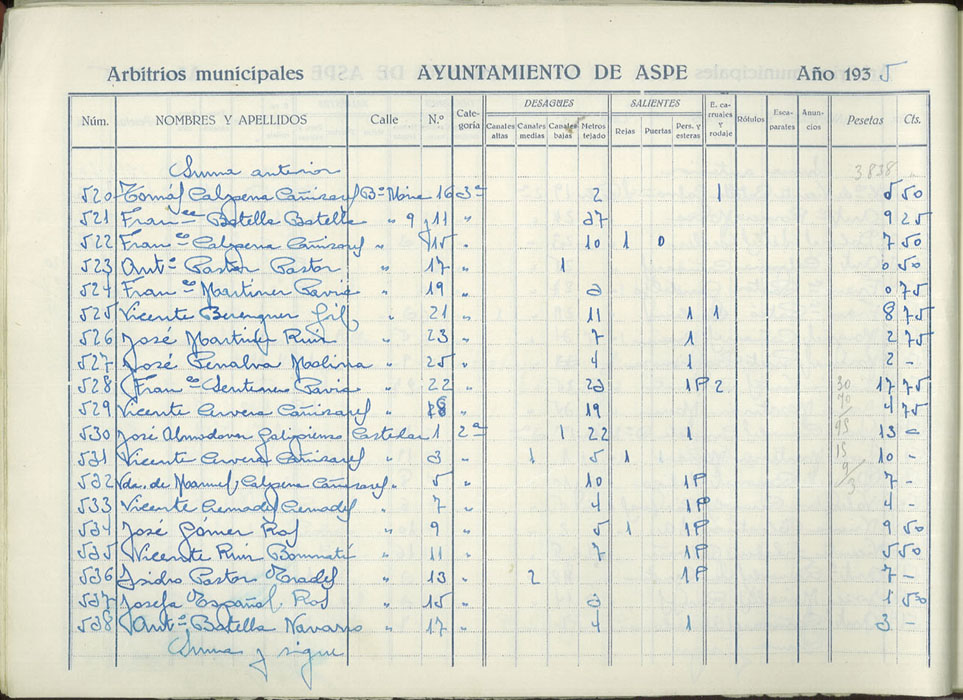 Arbitrios municipales AYUNTAMIENTO DE ASPE Año 1935
Núm. NOMBRES Y APELLIDOS Calle N.º Cate-goría DESAGUES Canales altas Canales medias Canales bajas Metros tejado SALIENTES Rejas Puertas Pers. y esteras E. ca-rruajes y rodaje Rótulos Esca-parates Anun-cios Pesetas Cts.
Suma anterior 3838
520 Tomás Calpena Cañizares Bº Mira 16 3ª 2 1 5 50
521 Franco Botella Botella " 9 y 11 " 37 9 25
522 Franco Calpena Cañizares " 15 " 10 1 0 7 50
523 Antº Pastor Pastor " 17 " 1 0 50
524 Franco Martinez Pavia " 19 " 3 0 75
525 Vicente Berenguer Gil " 21 " 11 1 1 8 75
526 José Martinez Ruiz " 23 " 7 1 2 75
527 José Penalva Molina " 25 " 4 1 2 -
528 Franco Sentenero Pavia " 22 " 23 1P 2 17 75
529 Vicente Cervera Cañizares " " 19 4 75
530 José Almodovar Galipienso Castelar 1 2ª 1 22 1 13 -
531 Vicente Cervera Cañizares " 3 " 1 5 1 10 -
532 Vda. de Manuel Calpena Cañizares " 5 " 10 1P 7 -
533 Vicente Cremades Cremades " 7 " 4 1P 4 -
534 José Gómez Ros " 9 " 5 1 1P 9 50
535 Vicente Ruiz Bonmatí " 11 " 7 1P 5 50
536 Isidro Pastor Prades " 13 " 2 1P 7 -
537 Josefa Español Ros " 15 " 3 1 50
538 Antº Botella Navarro " 17 " 4 1 3 -
Suma y sigue